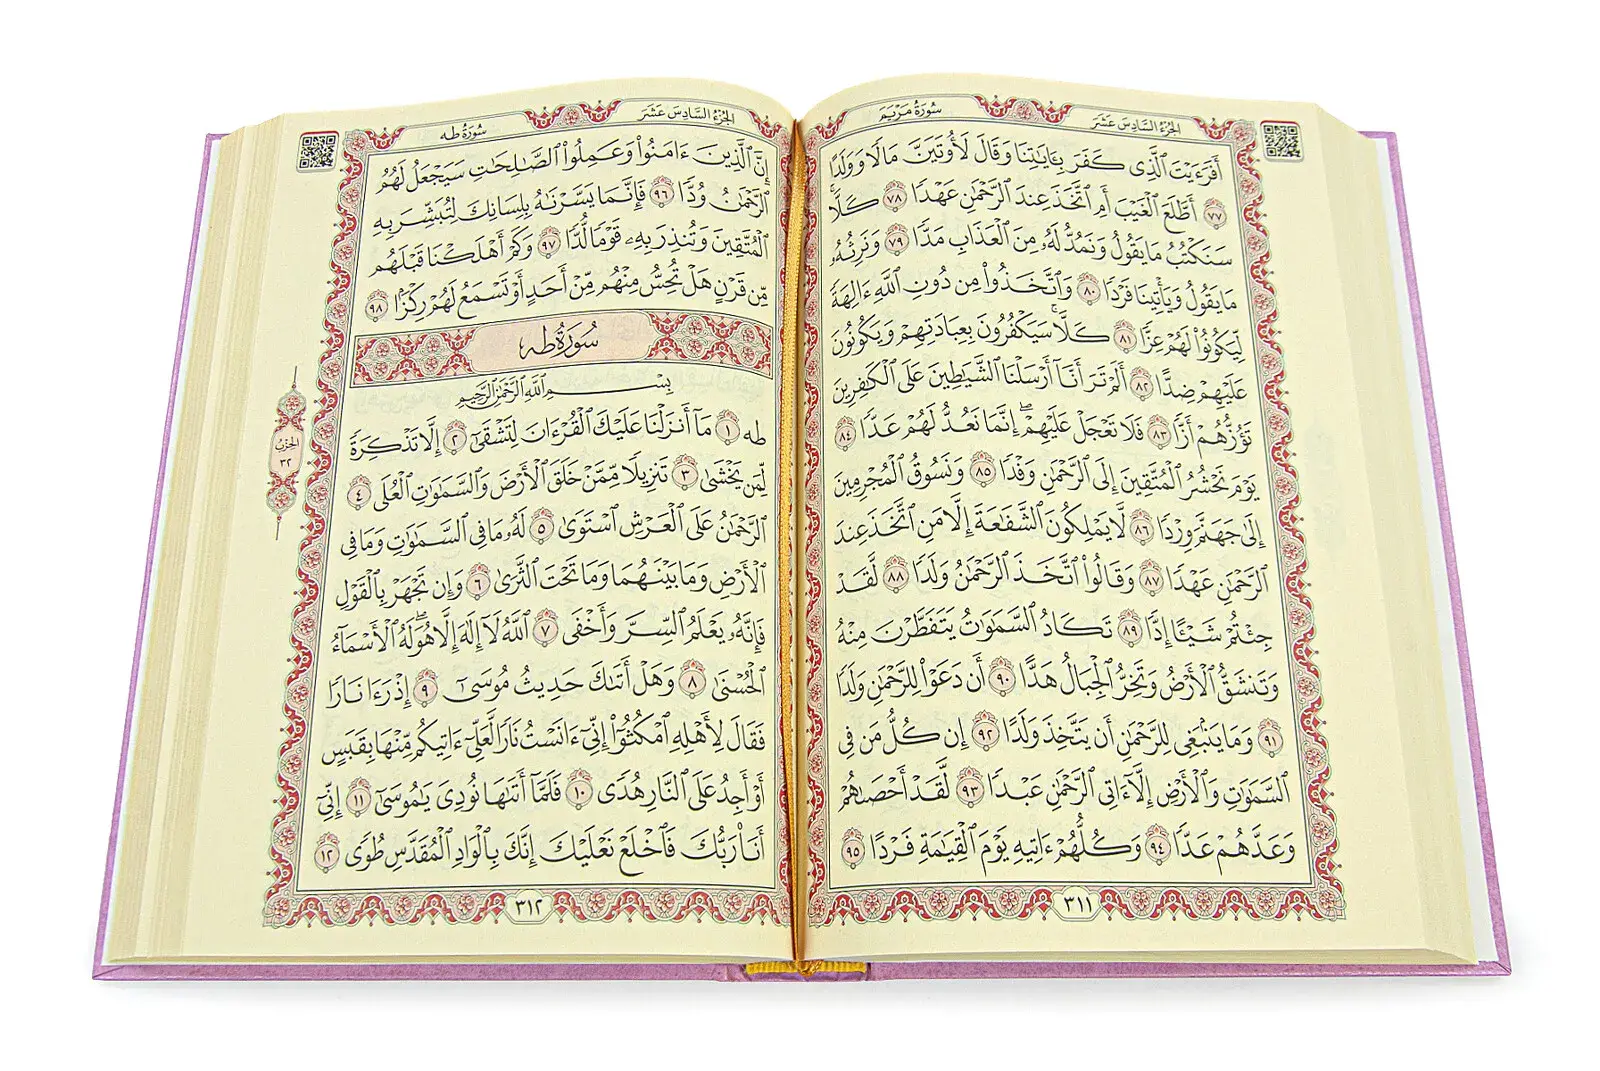 سُورَةُ مَرْيَمَ
الجُزْءُ السَّادِسَ عَشَرَ
أَفَرَءَيْتَ ٱلَّذِى كَفَرَ بِـَٔايَٰتِنَا وَقَالَ لَأُوتَيَنَّ مَالًا وَوَلَدًا
٧٧ أَطَّلَعَ ٱلْغَيْبَ أَمِ ٱتَّخَذَ عِندَ ٱلرَّحْمَٰنِ عَهْدًا ٧٨ كَلَّا ۚ
سَنَكْتُبُ مَا يَقُولُ وَنَمُدُّ لَهُۥ مِنَ ٱلْعَذَابِ مَدًّا ٧٩ وَنَرِثُهُۥ
مَا يَقُولُ وَيَأْتِينَا فَرْدًا ٨٠ وَٱتَّخَذُوا۟ مِن دُونِ ٱللَّهِ ءَالِهَةً
لِّيَكُونُوا۟ لَهُمْ عِزًّا ٨١ كَلَّا ۚ سَيَكْفُرُونَ بِعِبَادَتِهِمْ وَيَكُونُونَ
عَلَيْهِمْ ضِدًّا ٨٢ أَلَمْ تَرَ أَنَّآ أَرْسَلْنَا ٱلشَّيَٰطِينَ عَلَى ٱلْكَٰفِرِينَ
تَؤُزُّهُمْ أَزًّا ٨٣ فَلَا تَعْجَلْ عَلَيْهِمْ ۖ إِنَّمَا نَعُدُّ لَهُمْ عَدًّا ٨٤
يَوْمَ نَحْشُرُ ٱلْمُتَّقِينَ إِلَى ٱلرَّحْمَٰنِ وَفْدًا ٨٥ وَنَسُوقُ ٱلْمُجْرِمِينَ
إِلَىٰ جَهَنَّمَ وِرْدًا ٨٦ لَّا يَمْلِكُونَ ٱلشَّفَٰعَةَ إِلَّا مَنِ ٱتَّخَذَ عِندَ
ٱلرَّحْمَٰنِ عَهْدًا ٨٧ وَقَالُوا۟ ٱتَّخَذَ ٱلرَّحْمَٰنُ وَلَدًا ٨٨ لَّقَدْ
جِئْتُمْ شَيْـًٔا إِدًّا ٨٩ تَكَادُ ٱلسَّمَٰوَٰتُ يَتَفَطَّرْنَ مِنْهُ
وَتَنشَقُّ ٱلْأَرْضُ وَتَخِرُّ ٱلْجِبَالُ هَدًّا ٩٠ أَن دَعَوْا۟ لِلرَّحْمَٰنِ وَلَدًا
٩١ وَمَا يَنۢبَغِى لِلرَّحْمَٰنِ أَن يَتَّخِذَ وَلَدًا ٩٢ إِن كُلُّ مَن فِى
ٱلسَّمَٰوَٰتِ وَٱلْأَرْضِ إِلَّآ ءَاتِى ٱلرَّحْمَٰنِ عَبْدًا ٩٣ لَّقَدْ أَحْصَىٰهُمْ
وَعَدَّهُمْ عَدًّا ٩٤ وَكُلُّهُمْ ءَاتِيهِ يَوْمَ ٱلْقِيَٰمَةِ فَرْدًا ٩٥
٣١١
الجُزْءُ السَّادِسَ عَشَرَ
سُورَةُ طه
إِنَّ ٱلَّذِينَ ءَامَنُوا۟ وَعَمِلُوا۟ ٱلصَّٰلِحَٰتِ سَيَجْعَلُ لَهُمُ
ٱلرَّحْمَٰنُ وُدًّا ٩٦ فَإِنَّمَا يَسَّرْنَٰهُ بِلِسَانِكَ لِتُبَشِّرَ بِهِ
ٱلْمُتَّقِينَ وَتُنذِرَ بِهِۦ قَوْمًا لُّدًّا ٩٧ وَكَمْ أَهْلَكْنَا قَبْلَهُم
مِّن قَرْنٍ هَلْ تُحِسُّ مِنْهُم مِّنْ أَحَدٍ أَوْ تَسْمَعُ لَهُمْ رِكْزًۢا ٩٨
سُورَةُ طه
بِسْمِ ٱللَّهِ ٱلرَّحْمَٰنِ ٱلرَّحِيمِ
طه ١ مَآ أَنزَلْنَا عَلَيْكَ ٱلْقُرْءَانَ لِتَشْقَىٰٓ ٢ إِلَّا تَذْكِرَةً
لِّمَن يَخْشَىٰ ٣ تَنزِيلًا مِّمَّنْ خَلَقَ ٱلْأَرْضَ وَٱلسَّمَٰوَٰتِ ٱلْعُلَى ٤
ٱلرَّحْمَٰنُ عَلَى ٱلْعَرْشِ ٱسْتَوَىٰ ٥ لَهُۥ مَا فِى ٱلسَّمَٰوَٰتِ وَمَا فِى
ٱلْأَرْضِ وَمَا بَيْنَهُمَا وَمَا تَحْتَ ٱلثَّرَىٰ ٦ وَإِن تَجْهَرْ بِٱلْقَوْلِ
فَإِنَّهُۥ يَعْلَمُ ٱلسِّرَّ وَأَخْفَى ٧ ٱللَّهُ لَآ إِلَٰهَ إِلَّا هُوَ ۖ لَهُ ٱلْأَسْمَآءُ
ٱلْحُسْنَىٰ ٨ وَهَلْ أَتَىٰكَ حَدِيثُ مُوسَىٰٓ ٩ إِذْ رَءَا نَارًا
فَقَالَ لِأَهْلِهِ ٱمْكُثُوٓا۟ إِنِّىٓ ءَانَسْتُ نَارًا لَّعَلِّىٓ ءَاتِيكُم مِّنْهَا بِقَبَسٍ
أَوْ أَجِدُ عَلَى ٱلنَّارِ هُدًى ١٠ فَلَمَّآ أَتَىٰهَا نُودِىَ يَٰمُوسَىٰٓ ١١ إِنِّىٓ
أَنَا۠ رَبُّكَ فَٱخْلَعْ نَعْلَيْكَ ۖ إِنَّكَ بِٱلْوَادِ ٱلْمُقَدَّسِ طُوًى ١٢
٣١٢
الحِزْبُ
٣٢